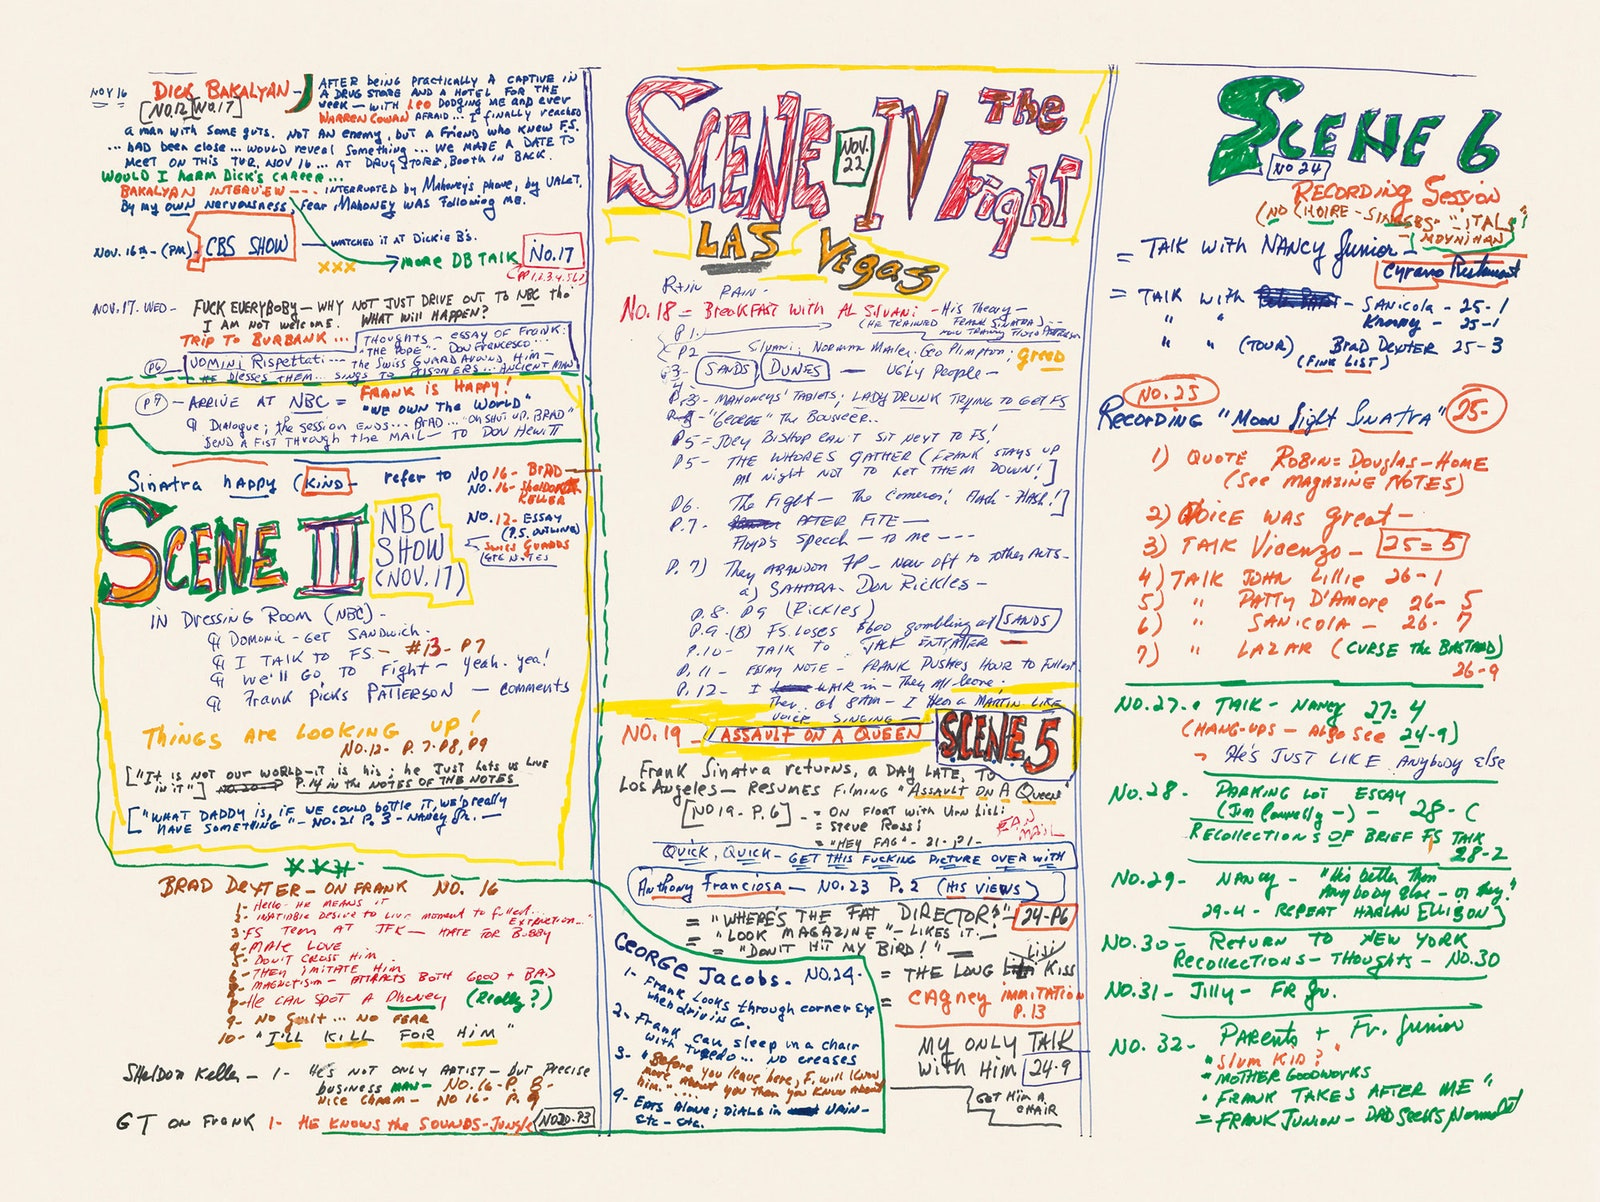 NOV 16
DICK BAKALYAN -
[NO.12] [NO.17]
AFTER being practically A CAPTIVE IN
A DRUG STORE AND A HOTEL FOR THE
week - WITH Leo DODGING ME and ever
WARREN COWAN AFRAID... I finally reached
a man with some guts. NOT AN enemy, but A Friend who knew F.S.
... had been close... would reveal something... WE MADE A DATE TO
MEET ON THIS TUE, NOV 16... AT DRUG STORE, Booth IN BACK.
WOULD I HARM DICK'S CAREER...
BAKALYAN INTERVIEW --- INTERRUPTED by Mahoney's phone, by VALET,
By my OWN nervousness, Fear MAHONEY WAS Following me.
Nov. 16th - (PM) - CBS SHOW
WATCHED IT AT DICKIE B'S.
XXX
MORE DB TALK
No.17
(PP 1,2,3,4,5,6,7
NOV. 17. WED - FUCK EVERYBODY - WHY NOT JUST DRIVE OUT TO NBC tho'
I AM NOT WELCOME. WHAT Will HAPPEN?
TRIP TO BURBANK...
THOUGHTS - ESSAY OF FRANK:
"THE POPE" - DON FRANCESCO...
(P6) UOMINI Rispettati... the Swiss GUARD AROUND HIM -
HE BLESSES THEM... SINGS TO PRISONERS... ANCIENT MAN
FRANK is HAPPY!
(P7) - ARRIVE AT NBC = "WE OWN THE WORLD"
¶ Dialogue; the session ENDS... BRAD... "OH SHUT UP, BRAD"
SEND A FIST THROUGH THE MAIL - TO DON HEWITT
Sinatra happy (KIND - refer to NO 16 - BRAD
NO. 16 - Sheldon
KELLER
SCENE III
NBC
SHOW
(NOV. 17)
NO. 12 - ESSAY
(P.S. OUTLINE)
Swiss GUARDS
ETC NOTES
IN Dressing Room (NBC) -
¶ DOMONIC - GET SANDWICH -
¶ I TALK TO FS - #13 - P7
¶ We'll GO TO Fight - yeah. yea!
¶ Frank PICKS PATTERSON - comments
THINGS ARE LOOKING UP!
NO. 12 - P. 7 - P8, P9
["It IS NOT OUR WORLD - IT IS his; he JUST LETS US LIVE
IN IT"] NO. 20 P.14 in the NOTES OF THE NOTES
["WHAT DADDY IS, IF WE COULD BOTTLE IT, WE'D really
HAVE SOMETHING" - NO. 21 P. 3 - NANCY Jr. -
BRAD DEXTER - ON FRANK NO. 16
1- Hello - HE MEANS IT
2- INSATIABLE DESIRE TO LIVE MOMENT to fullest...
EXTINCTION..."
3- FS Teen AT JFK - HATE FOR BOBBY
4- MALE LOVE
5- DON'T CROSS HIM
6- THEY IMITATE HIM
7- MAGNETISM - ATTRACTS BOTH GOOD + BAD
8- HE CAN SPOT A Phoney (Really?)
9- NO Guilt... NO FEAR
10- "I'LL KILL FOR HIM"
SHELDON Keller - 1- He's NOT ONLY ARTIST - but PRECISE
business MAN - NO. 16 - P. 8 -
NICE CHARM - NO 16 - P. 9
GT ON FRANK 1- HE KNOWS the SOUNDS - JUNGLE NO20. P3
SCENE IV The Fight
NOV. 22
LAS VEGAS
RAIN RAIN -
NO. 18 = BreakFAST with AL SILVANI - His Theory -
P1. (HE TRAINED FRANK SINATRA)...
NOW TRAINING FLOYD PATTERSON
P2 - Silvani; Norman Mailer, Geo Plimpton; GREED
3- SANDS DUNES - UGLY People -
4
P.3- MAHONEY'S TABLETS; LADY DRUNK TRYING TO GET FS
- "GEORGE" the BOUNCER..
P5 = JOEY BISHOP CAN'T SIT NEXT TO FS!
P5 - THE WHORES GATHER (FRANK STAYS UP
All Night NOT TO LET THEM DOWN!]
P6. The Fight - The Cameras! Flash - Flash!]
P.7 - AFTER FITE -
Floyd's Speech - to me ---
P. 7) They ABANDON FP - NOW off to other ACTS -
a) SAHARA - DON RICKLES -
P.8. P9 (RICKLES)
P.9. (B) FS. LOSES $600 gambling at SANDS
P.10 - TALK TO JACK ENTRATTER
P. 11 - ESSAY NOTE - FRANK PUSHES HOUR TO Fullest.
P. 12 - I WALK in - They All leave.
Then at 8AM - I Hear a MARTIN LIKE
VOICE SINGING -
NO.19 - ASSAULT ON A QUEEN
SCENE 5
Frank Sinatra returns, a DAY LATE, TO
Los Angeles - RESUMES FILMING "ASSAULT ON A Queen"
[NO 19 - P.6] - = ON FLOAT with Virn Lisi;
= Steve Rossi
= "HEY FAG" - 21 - P1 -
FAN MAIL
QUICK, QUICK - GET THIS FUCKING PICTURE OVER WITH
Anthony Franciosa - NO. 23 P. 2 (HIS VIEWS)
= "WHERE'S THE FAT DIRECTOR?" - 24-P6
= "LOOK MAGAZINE" - LIKES IT -
= "DON'T HIT MY BIRD!" -
= THE LONG LISI KISS
= CAGNEY IMMITATION
P. 13
GEORGE JACOBS - NO. 24 -
1- FRANK LOOKS through corner Eye
when driving.
2- FRANK CAN SLEEP IN A CHAIR
WITH TUXEDO... NO CREASES
3- "Before you leave here, F. will know
more about you then you know about
him.....
4- EATS Alone; DIALS in VAIN -
etc - etc.
MY ONLY TALK
With Him 24-9
GET HIM A
CHAIR
SCENE 6
NO 24
RECORDING Session
MOYNIHAN
= TALK with NANCY Junior -
Cyrano Restaurant
= TALK with - SANICOLA - 25-1
" " Knappy - 25-1
" " (TOUR) BRAD DEXTER 25-3
(FINK LIST)
NO. 25
RECORDING "MOON Light SINATRA" 25-
1) QUOTE ROBIN = Douglas - HOME
(See MAGAZINE NOTES)
2) VOICE WAS Great -
3) TALK Vicenzo - 25=5
4) TALK JOHN Lillie 26-1
5) " PATTY D'AMORE 26-5
6) " SANICOLA - 26-7
7) " LAZAR (CURSE the BASTARD)
26-9
NO. 27. - TALK - NANCY 27=4
(HANG-UPS - Also see 24-9)
- He's JUST LIKE Anybody else
NO. 28 - PARKING LOT ESSAY
(Jim Connelly -) - 28-C
RECOLLECTIONS OF BRIEF FS TALK
28-2
NO. 29 - NANCY - "His better than
Anybody else - or say."
29-4 - REPEAT HARLAN ELLISON)
NO. 30 - Return TO NEW YORK
Recollections - Thoughts - NO. 30
NO. 31 - Jilly - FR Jr.
NO. 32 - PARENTS + Fr. Junior
• "SLUM KID?"
• MOTHER GOODWORKS
• "FRANK TAKES AFTER ME"
= FRANK JUNIOR - DAD Seeks Normalcy